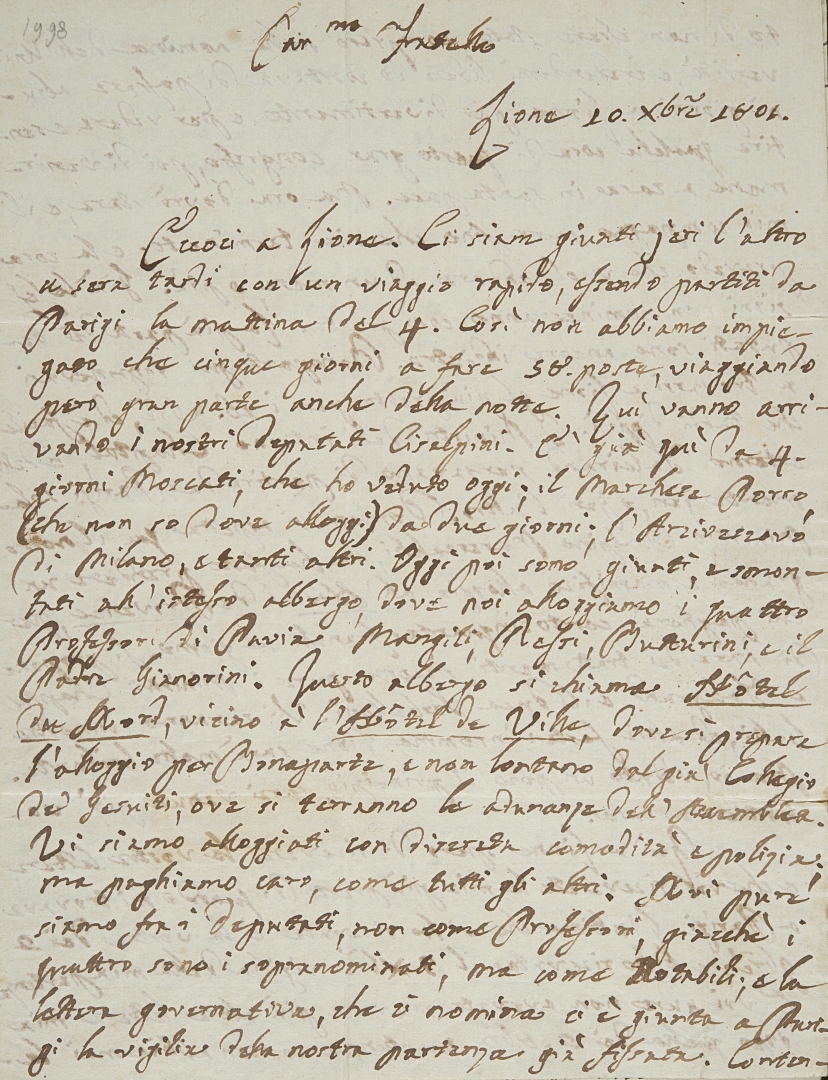 1998
Car.mo Fratello
Lione 10. Xbre 1801.
Eccoci a Lione. Ci siam giunti jeri l'altro
a sera tardi con un viaggio rapido, essendo partiti da
Parigi la mattina del 4. Così non abbiamo impie-
gato che cinque giorni a fare 58. poste, viaggiando
però gran parte anche della notte. Quì vanno arri-
vando i nostri deputati Cisalpini. C'è già quì da 4.
giorni Moscati, che ho veduto oggi; il Marchese Porro,
(che non so dove alloggi) da due giorni; l'Arcivescovo
di Milano, e tanti altri. Oggi poi sono giunti, e smon-
tati all'istesso albergo, dove noi alloggiamo i quattro
Professori di Pavia Mangili, Ressi, Butturini, e il
Padre Gianorini. Questo albergo si chiama Hôtel
du Nord, vicino à l'Hôtel de Ville, dove si prepara
l'alloggio per Bonaparte, e non lontano dal già Collegio
de' Gesuiti, ove si terranno le adunanze dell'Assemblea.
Vi siamo alloggiati con discreta comodità e polizia;
ma paghiamo caro, come tutti gli altri. Noi pure
siamo fra i deputati, non come Professori, giacchè i
quattro sono i sopranominati, ma come Notabili; e la
lettera governativa, che ci nomina ci è giunta a Pari-
gi la vigilia della nostra partenza già fissata. Conten-